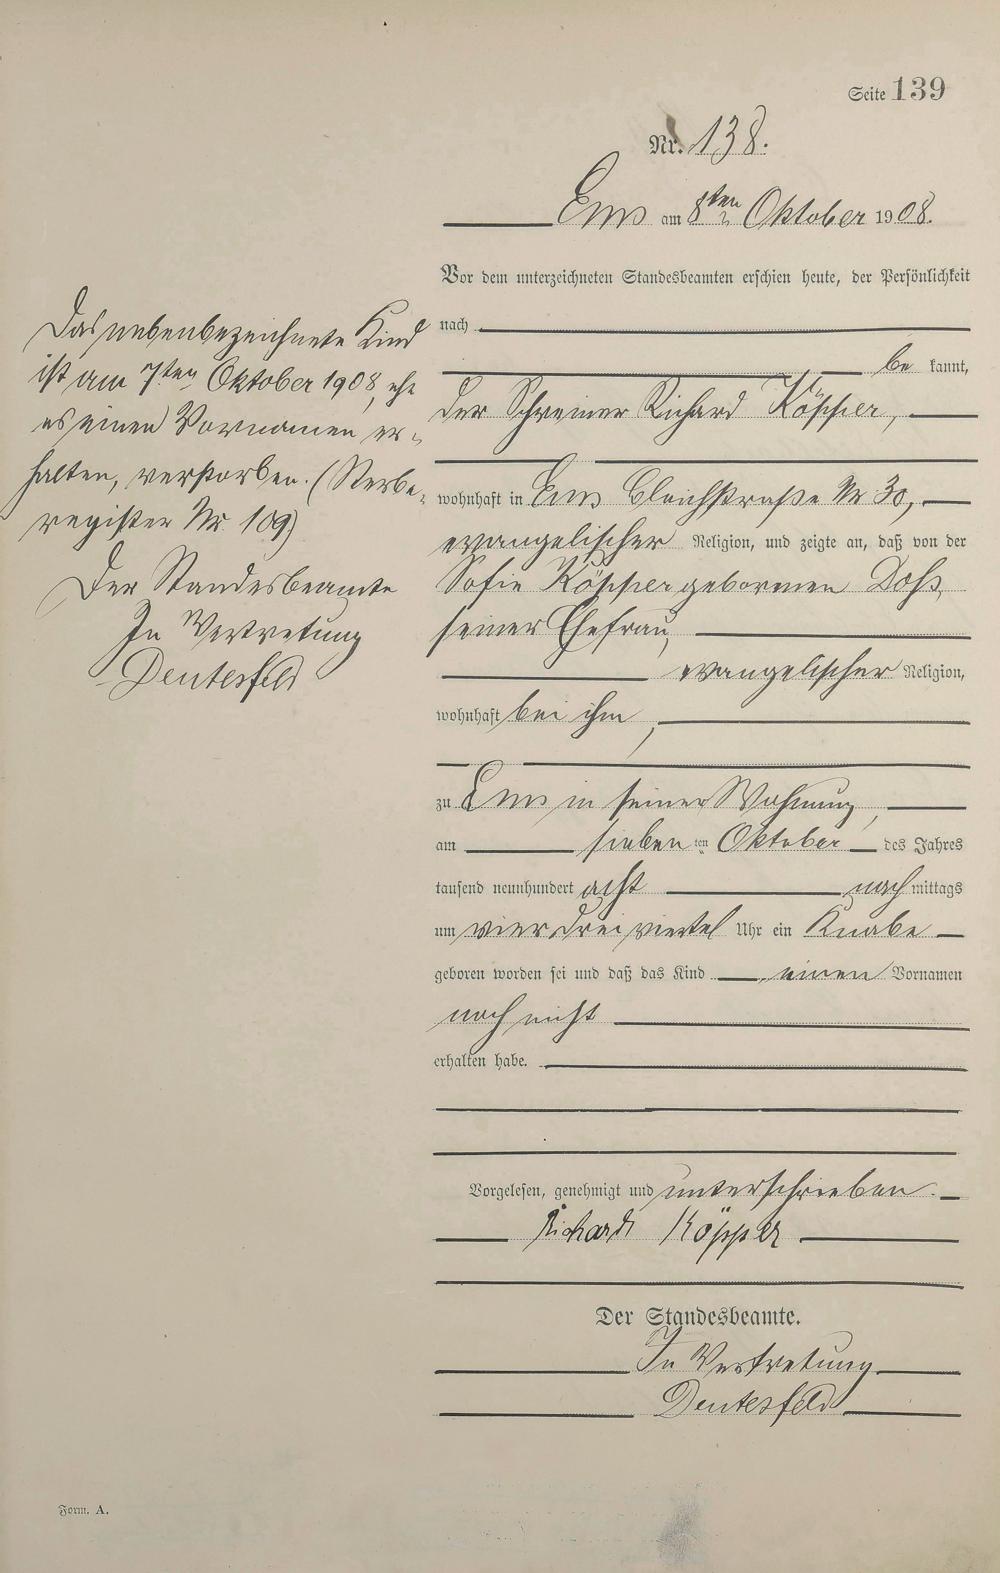 Seite 139
Nr. 138.
Ems am 8ten Oktober 1908.
Vor dem unterzeichneten Standesbeamten erschien heute, der Persönlichkeit
nach
be kannt,
der Schreiner Richard Köpper,
wohnhaft in Ems Bleichstraße Nr. 30,
evangelischer Religion, und zeigte an, daß von der
Sofie Köpper geborenen Doß,
seiner Ehefrau,
evangelischer Religion,
wohnhaft bei ihm,
zu Ems in seiner Wohnung,
am sieben ten Oktober des Jahres
tausend neunhundert acht nach mittags
um vier drei viertel Uhr ein Knabe
geboren worden sei und daß das Kind einen Vornamen
noch nicht
erhalten habe.
Vorgelesen, genehmigt und unterschrieben.
Richard Köpper
Der Standesbeamte.
In Vertretung
Deutesfeld
Das nebenbezeichnete Kind
ist am 7ten Oktober 1908, ehe
es einen Vornamen er-
halten, verstorben. (Sterbe-
register Nr. 109)
Der Standesbeamte
In Vertretung
Deutesfeld
Form. A.